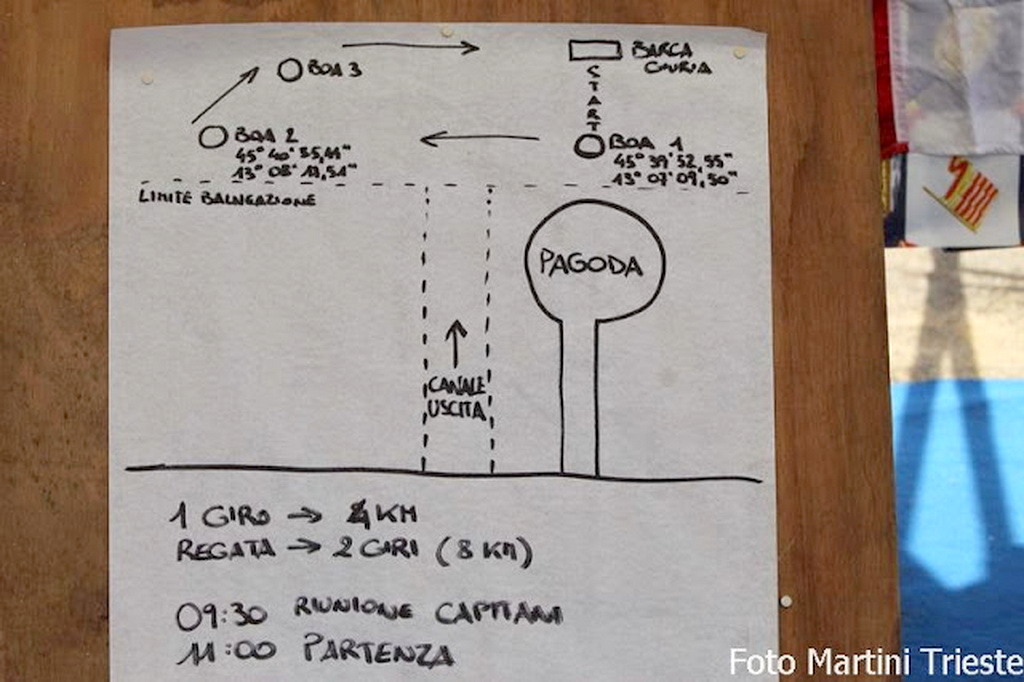 BOA 3
BARCA
GIURIA
START
BOA 2
45° 40' 55,44"
13° 08' 11,51"
BOA 1
45° 39' 52,55"
13° 07' 09,50"
LIMITE BALNEAZIONE
PAGODA
CANALE
USCITA
1 GIRO → 4 KM
REGATA → 2 GIRI (8 KM)
09:30 RIUNIONE CAPITANI
11:00 PARTENZA
Foto Martini Trieste